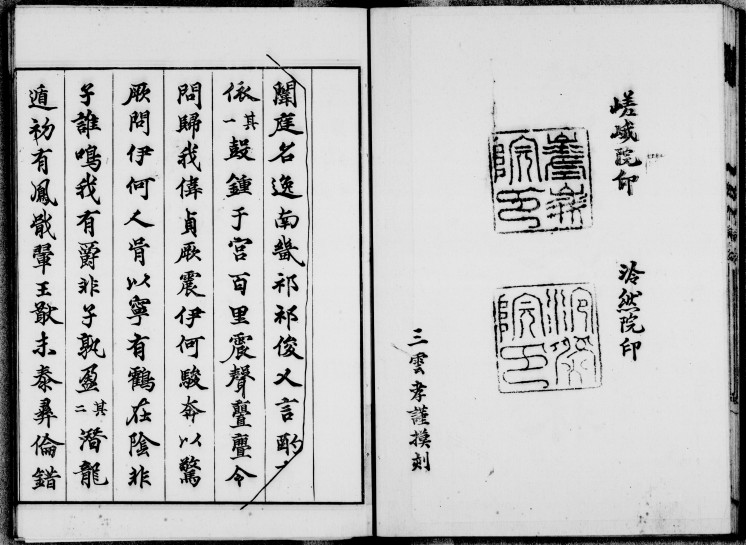 嵯峨院印
冷然院印
嵯峨院印
冷然院印
三雲孝謹摸刻
闡庭名逸南畿祁祁俊乂言酌
依其一鼓鍾于宮百里震聲亹亹令
問歸我偉貞厥震伊何駿奔以驚
厥問伊何人肯以寧有鶴在陰非
子誰鳴我有爵非子孰盈其二潛龍
遁初有鳳戢翬王猷未泰彝倫錯